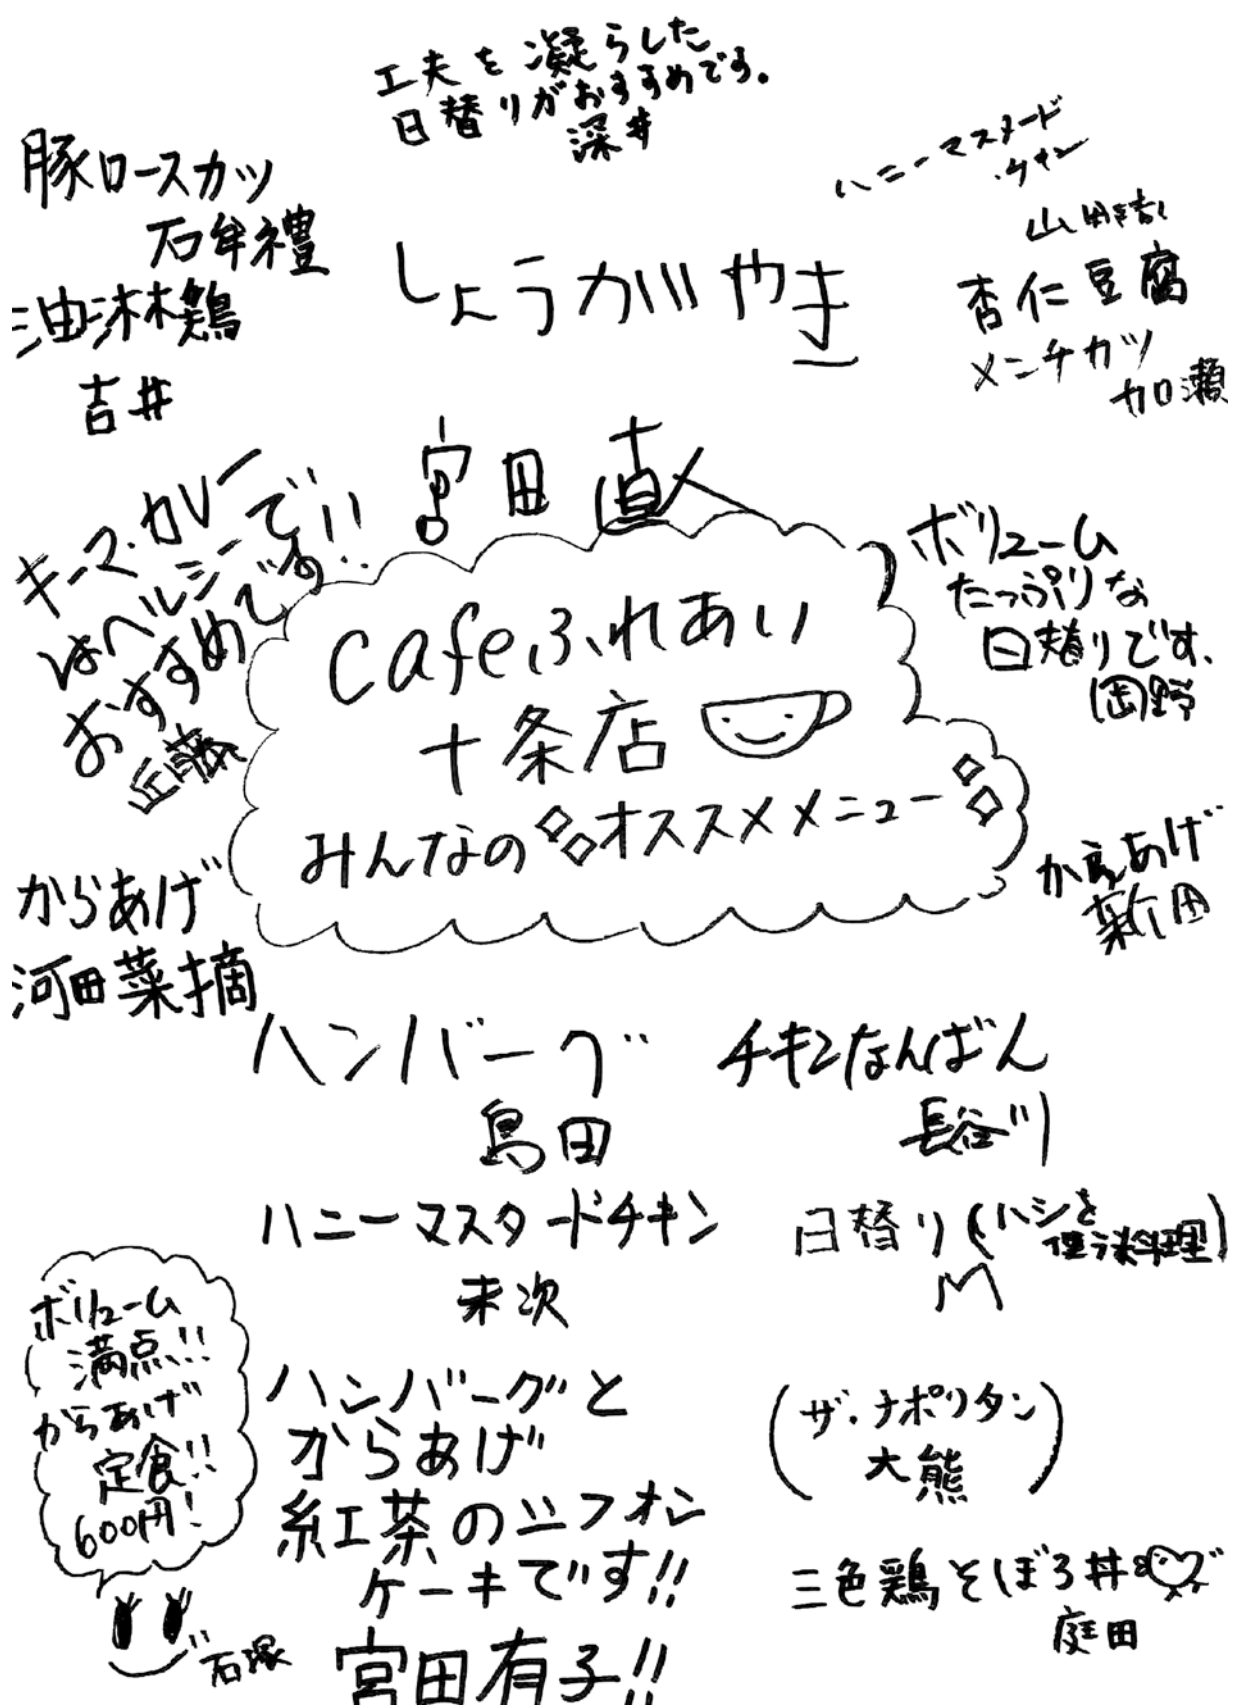 工夫を凝らした
日替りがおすすめです。
深井
豚ロースカツ
石牟禮
油淋鶏
吉井
しょうがやき
宮田直人
ハニーマスタード
チキン
山田
杏仁豆腐
メンチカツ
加瀬
キーマカレー
はヘルシーで
おすすめです!!
近藤
cafeふれあい
十条店
みんなのオススメメニュー
ボリューム
たっぷりな
日替りです、
岡野
からあげ
河田菜摘
からあげ
新田
ハンバーグ
島田
チキンなんばん
長谷川
ハニーマスタードチキン
末次
日替り(ハシを
使う料理)
M
ボリューム
満点!!
からあげ
定食!!
600円!
石塚
ハンバーグと
からあげ
紅茶のシフォン
ケーキです!!
宮田有子!!
(ザ・ナポリタン
大熊)
三色鶏そぼろ丼
庭田